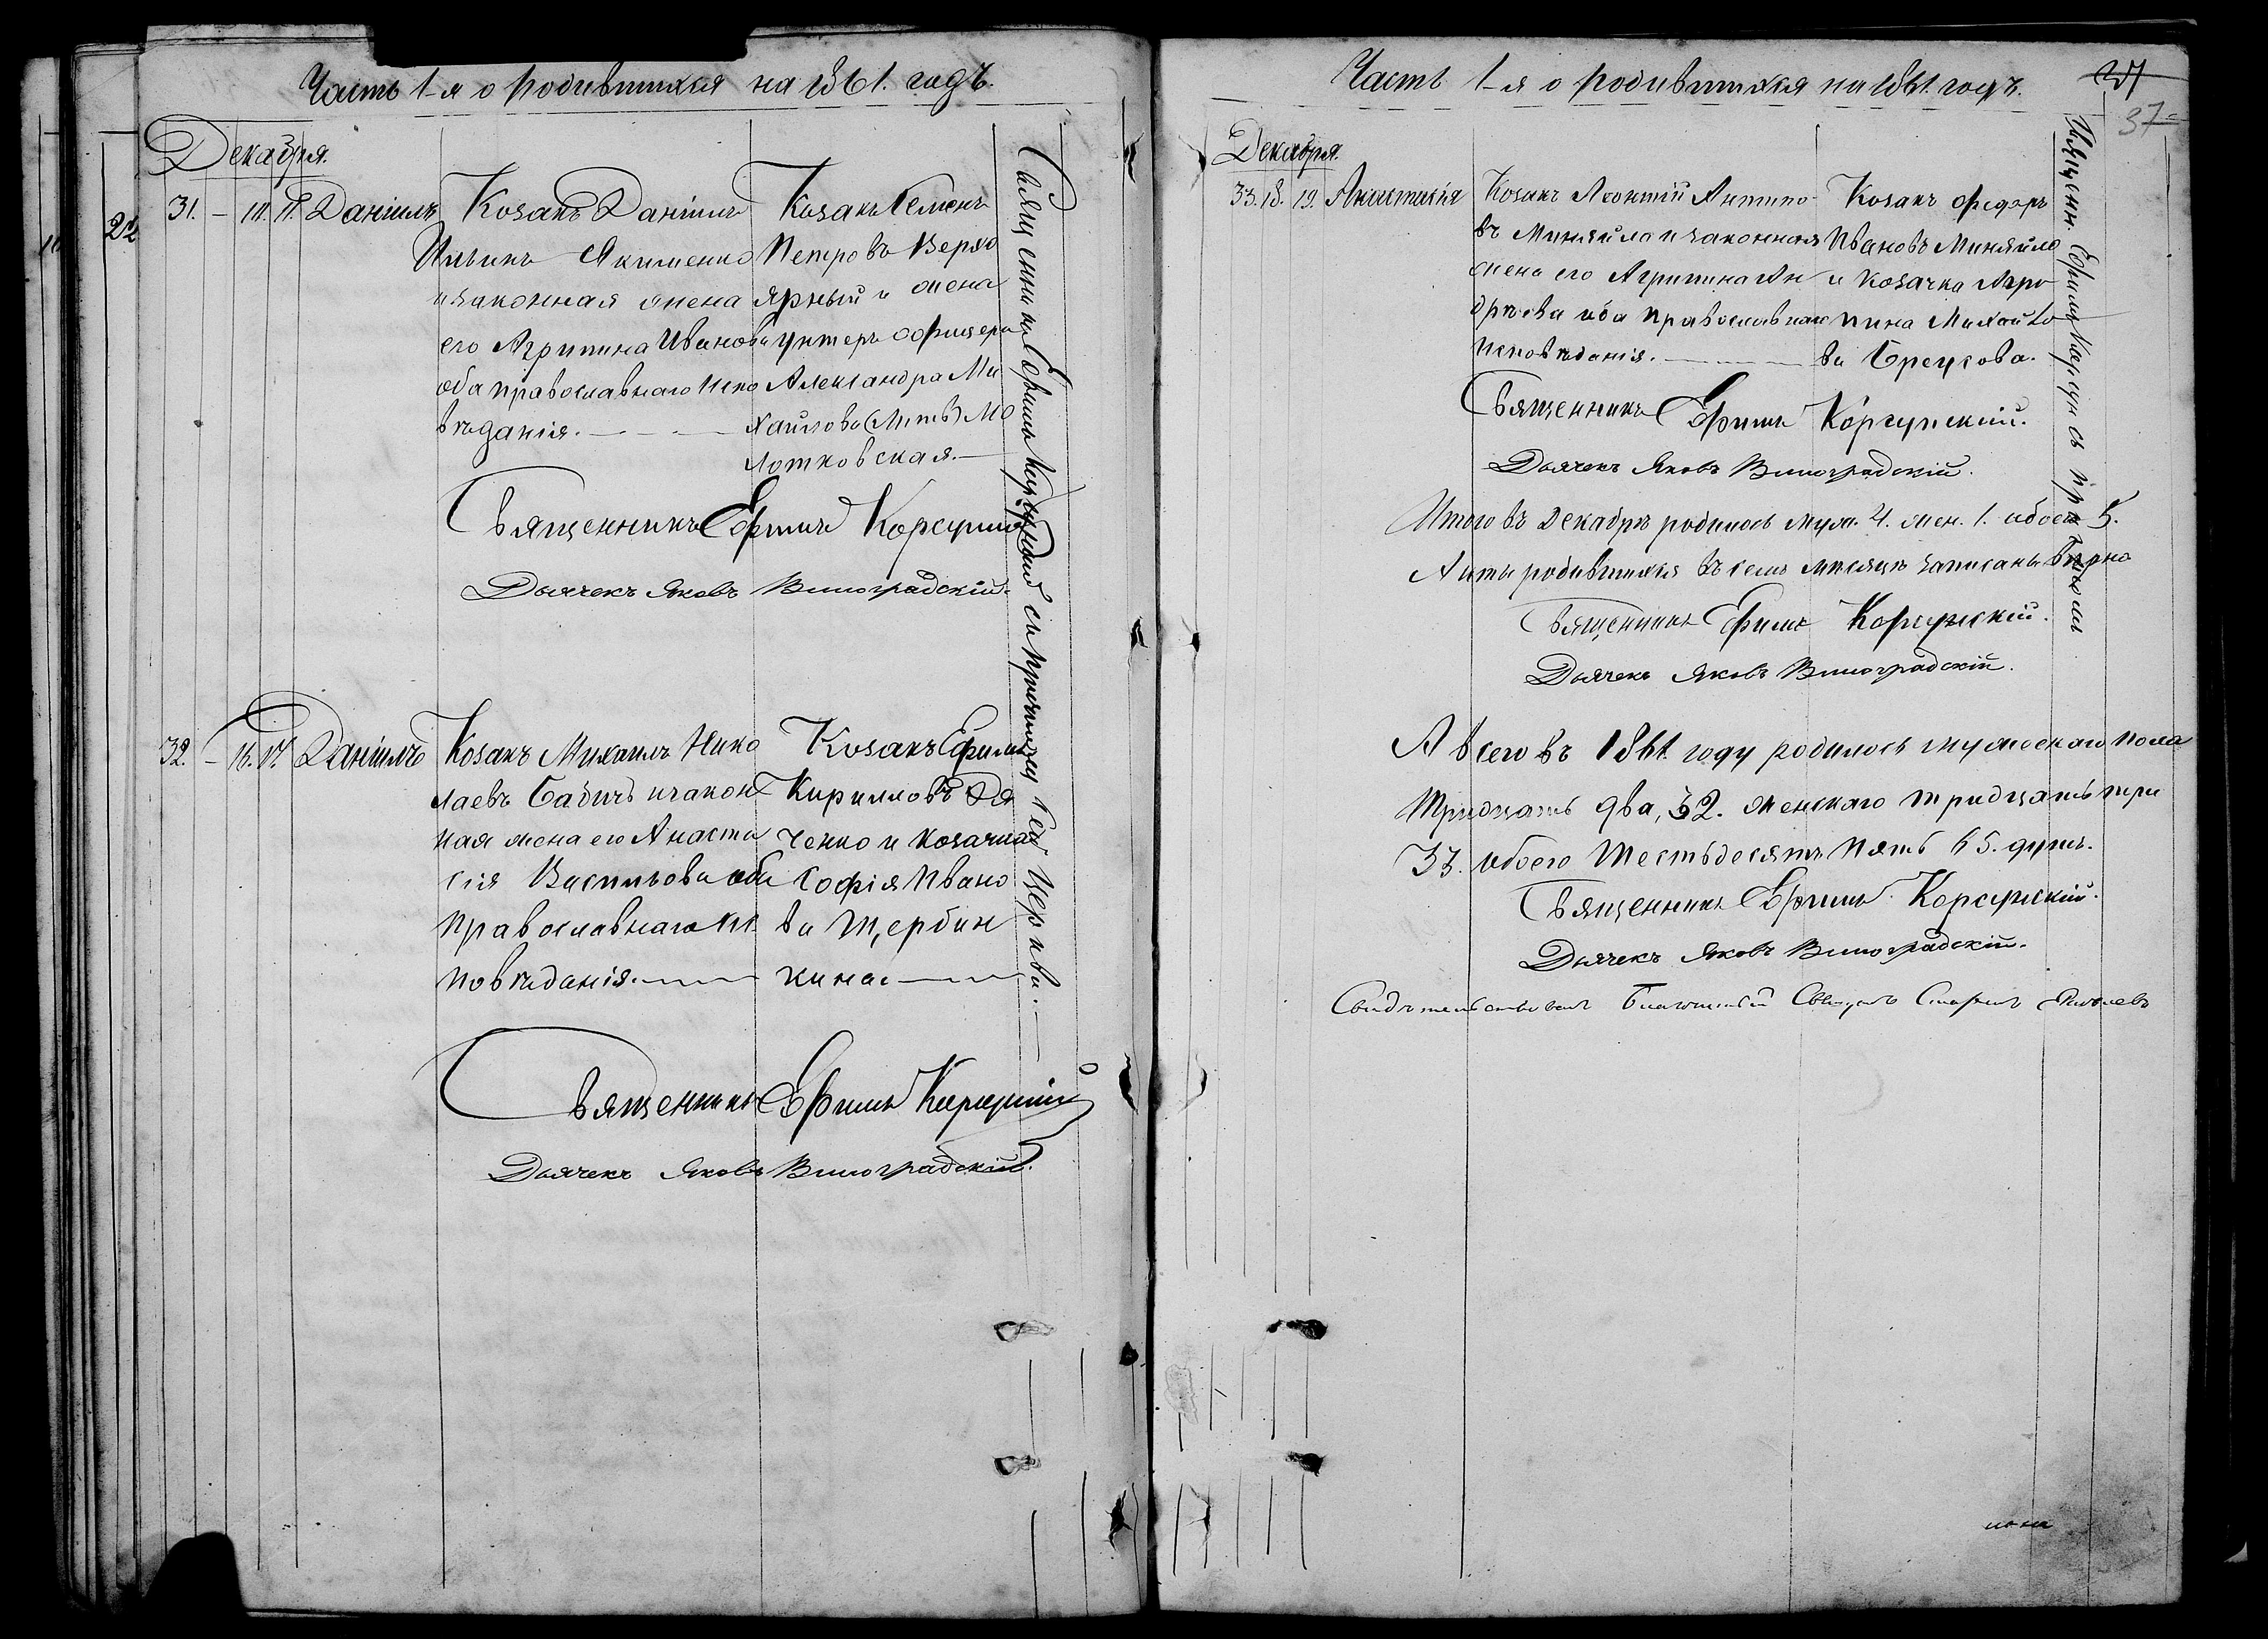 Часть 1-я о родившихся на 1861. годъ.
Декабря.
22
31. – 10. 11. Даніилъ
Козакъ Даніилъ
Ильинъ Якименко
и законная жена
его Агрипина Иванова
оба православнаго испо
вѣданія.
Козакъ Семенъ
Петровъ Верхо
ярный и жена
унтеръ офицера
Александра Ми
хайлова Мо
лотковская.
Священникъ Ефимъ Корсунскій
Дьячекъ Яковъ Виноградскій.
32. – 16. 17. Даніилъ
Козакъ Михаилъ Нико
лаевъ Бабичъ и закон
ная жена его Анаста
сія Васильова оба
православнаго ис
повѣданія.
Козакъ Ефимъ
Кирилловъ Дя
ченко и козачка
Софія Ивано
ва Щербин
кина.
Священникъ Ефимъ Корсунскій
Дьячекъ Яковъ Виноградскій.
Священникъ Ефимъ Корсунскій съ причтомъ сей церкви.
Часть 1-я о родившихся на 1861. годъ.
37
Декабря.
33. 18. 19. Анастасія
Козакъ Леонтій Антипо
въ Миняйло и законная
жена его Агрипина Ан
дрѣева оба православнаго
исповѣданія.
Козакъ Федоръ
Ивановъ Миняйло
и козачка Агри
пина Михайло
ва Бреусова.
Священникъ Ефимъ Корсунскій.
Дьячекъ Яковъ Виноградскій.
Итого въ Декабрѣ родилось муж. 4. жен. 1. обоего 5.
А что родившихся въ семъ мѣсяцѣ записаны вѣрно
Священникъ Ефимъ Корсунскій.
Дьячекъ Яковъ Виноградскій.
А всего въ 1861 году родилось мужескаго пола
тридцать два, 32. женскаго тридцать три
33. обоего шестьдесятъ пять 65. душъ.
Священникъ Ефимъ Корсунскій.
Дьячекъ Яковъ Виноградскій.
Свидѣтельствовалъ Благочинный
Священн. Ефимъ Корсун съ причтомъ